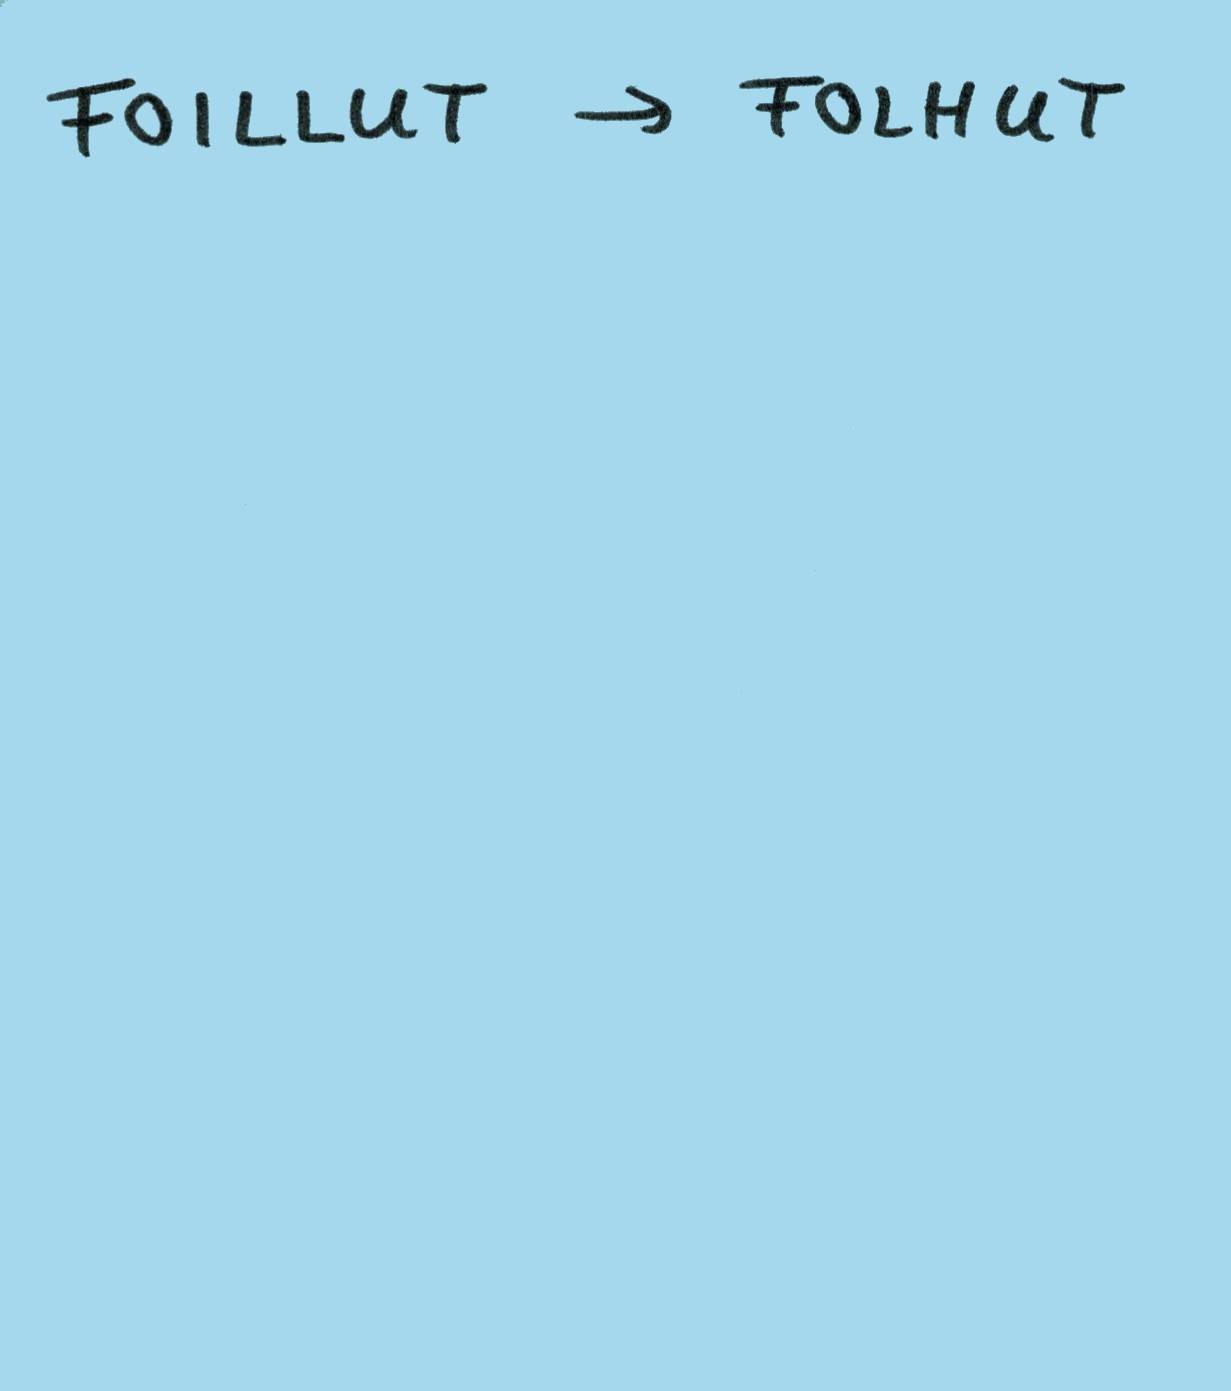 FOILLUT → FOLHUT